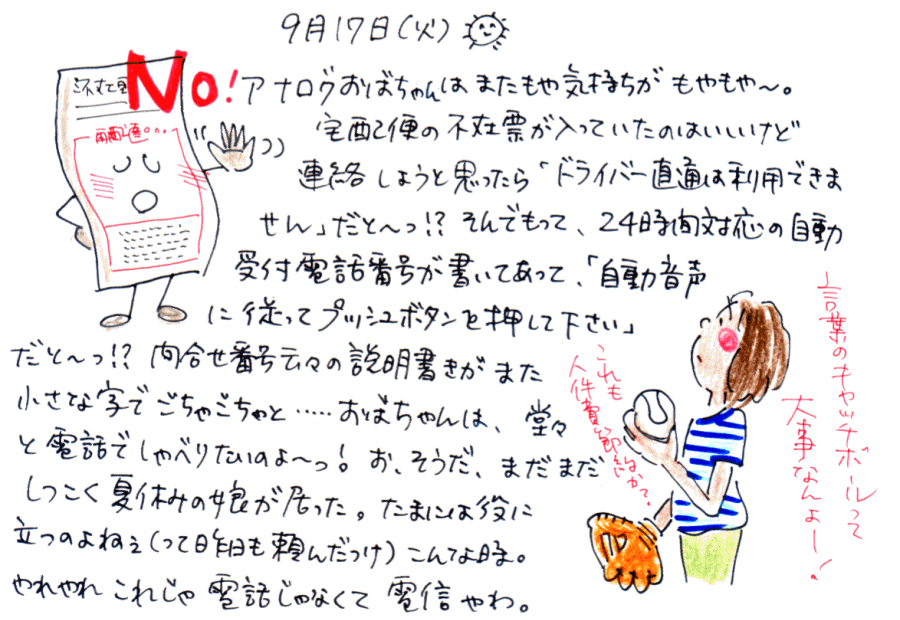 9月17日(火)
不在票
No!
アナログおばちゃんは またもや気持ちが もやもや〜。
宅配便の不在票が入っていたのはいいけど
連絡しようと思ったら「ドライバー直通は利用できま
せん」だと〜っ!? そんでもって、24時間対応の自動
受付電話番号が書いてあって、「自動音声
に従ってプッシュボタンを押して下さい」
だと〜っ!? 問合せ番号云々の説明書きがまた
小さな字でごちゃごちゃと……おばちゃんは、堂々
と電話でしゃべりたいのよ〜っ! お、そうだ、まだまだ
しつこく夏休みの娘が居った。たまには役に
立つのよねぇ(って昨日も頼んだっけ)こんな時。
やれやれ これじゃ 電話じゃなくて 電信やわ。
言葉のキャッチボールって
大事なんよー!
これも
人件費節約か?